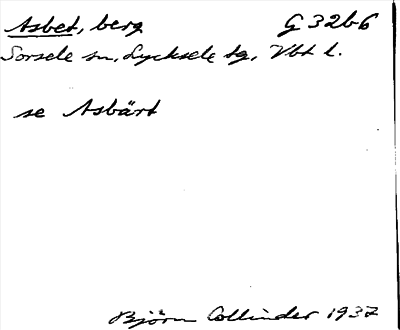 Asbet, berg G 32b6
Sorsele sn, Lycksele tg, Vbt l.
se Asbärt
Björn Collinder 1937